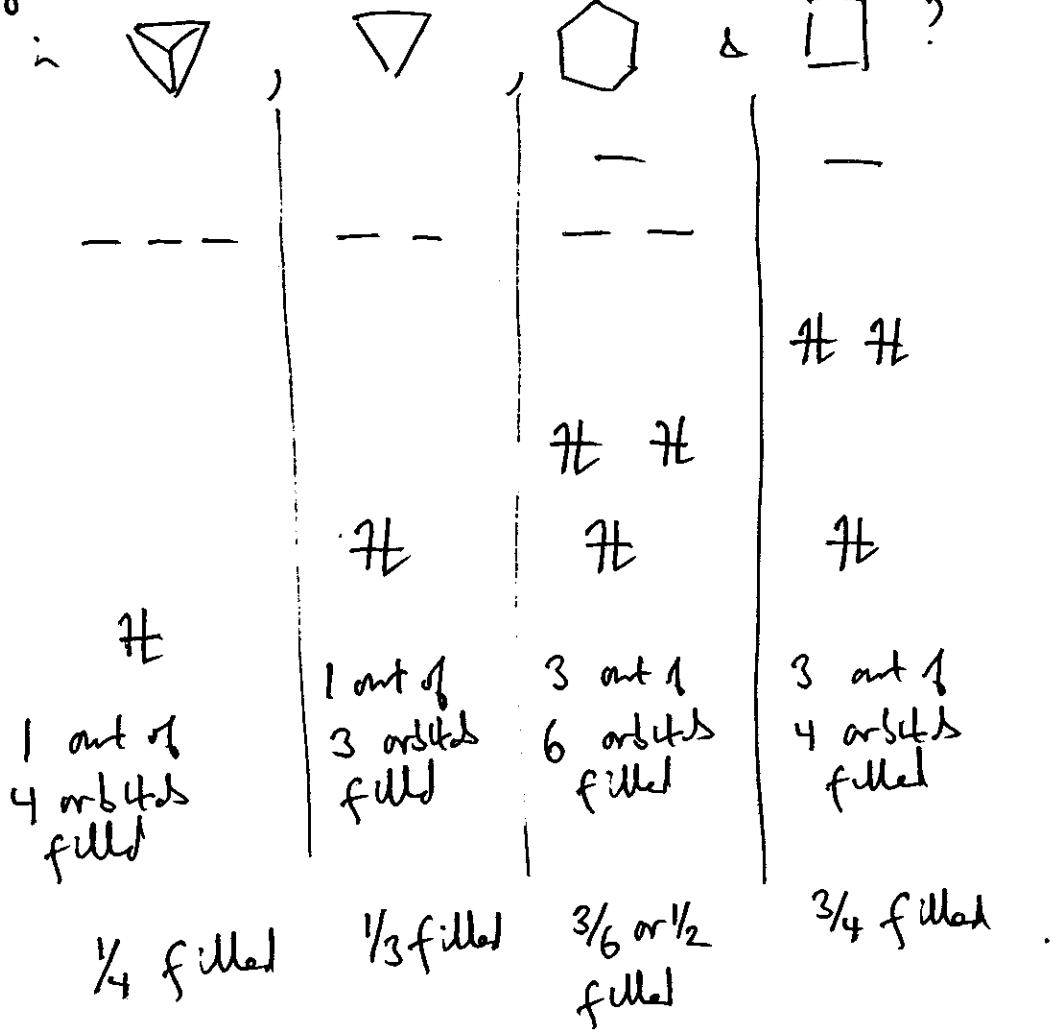 in , , & ?
1 out of
4 orbitals
filled
1 out of
3 orbitals
filled
3 out of
6 orbitals
filled
3 out of
4 orbitals
filled
1/4 filled
1/3 filled
3/6 or 1/2
filled
3/4 filled